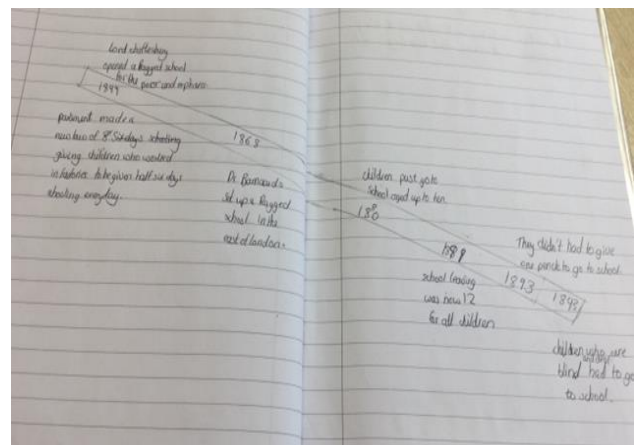 Lord shaftesbury
opened a Ragged school
for the poor and orphans
1844
parliament made a
new law of 8 Sixdays schooling
giving children who worked
in factories to be given half six days
shooling everyday.
1868
Dr Barnardo
set up a Ragged
school in the
east of london.
children must go to
school aged up to ten
1880
1889
school leaving
was now 12
for all children
They didn't had to give
one pence to go to school.
1893
1893
children who are
blind had to go
to school.